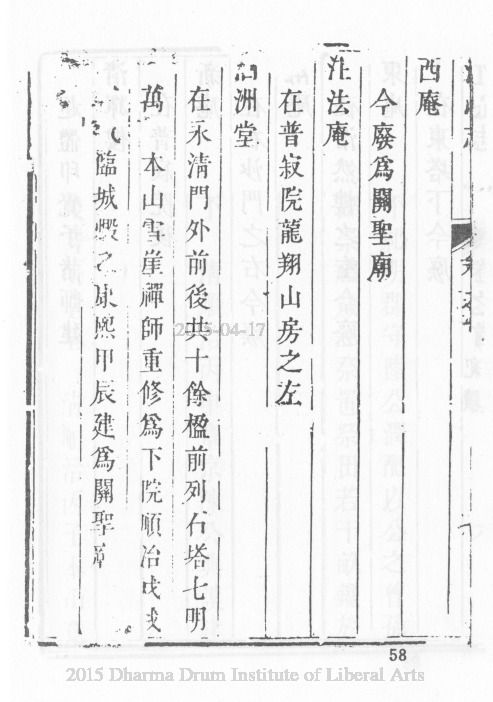 西庵
今廢爲關聖廟
法庵
在普寂院龍翔山房之左
洲堂
在永清門外前後共十餘楹前列石塔七明
萬 本山雪崖禪師重修爲下院順治戊戌
臨城燬之康熙甲辰建爲關聖
2015-04-17
58
2015 Dharma Drum Institute of Liberal Arts